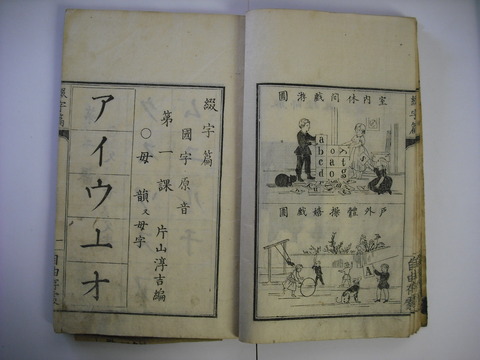 綴字篇
室内休間戯游圖
戸外體操嬉戯圖
綴字篇
國字原音
第一課 片山淳吉編
○母韻又母字
ア
イ
ウ
エ
オ
綴字篇
一